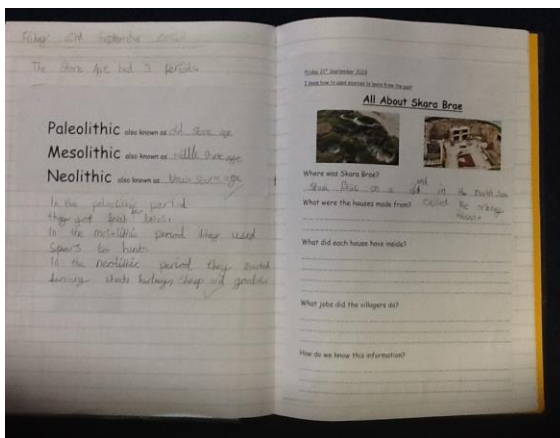 Friday 2nd September
The Stone Age had 3 periods.
Paleolithic also known as old stone age
Mesolithic also known as middle stone age
Neolithic also known as New stone age
In the paleolithic period
they got food
In the mesolithic period they used
spears to hunt.
In the neolithic period they started
farming sheep and goats
Friday 21st September 2023
I know how to used sources to learn from the past
All About Skara Brae
Where was Skara Brae?
Skara Brae in the North
What were the houses made from? called
What did each house have inside?
What jobs did the villagers do?
How do we know this information?